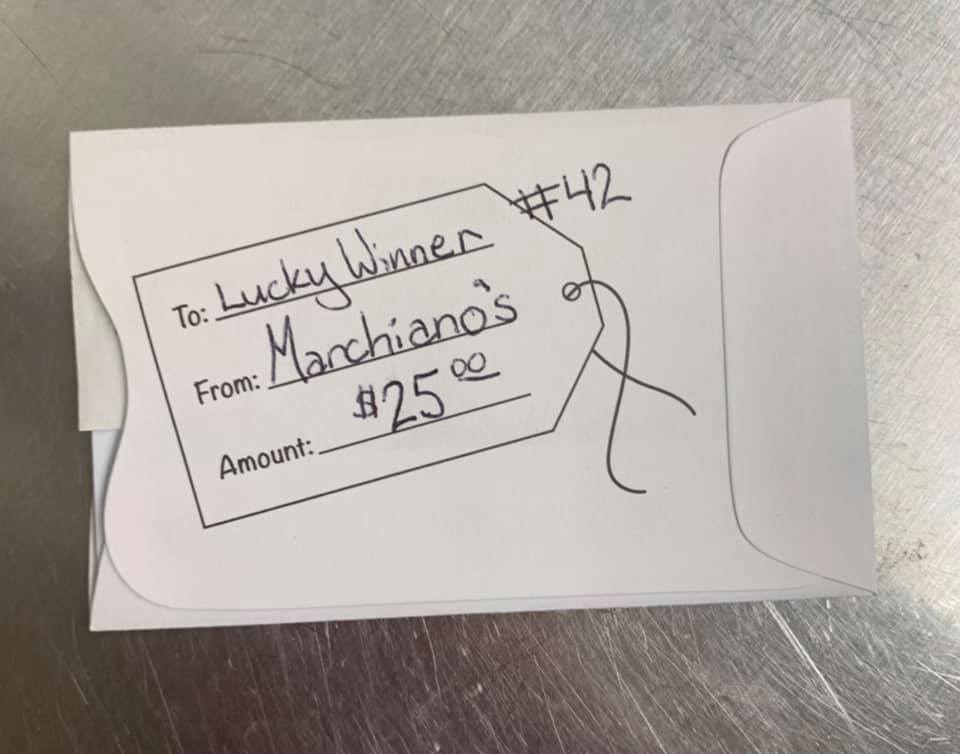 #42
To: Lucky Winner
From: Marchiano's
Amount: $25.00